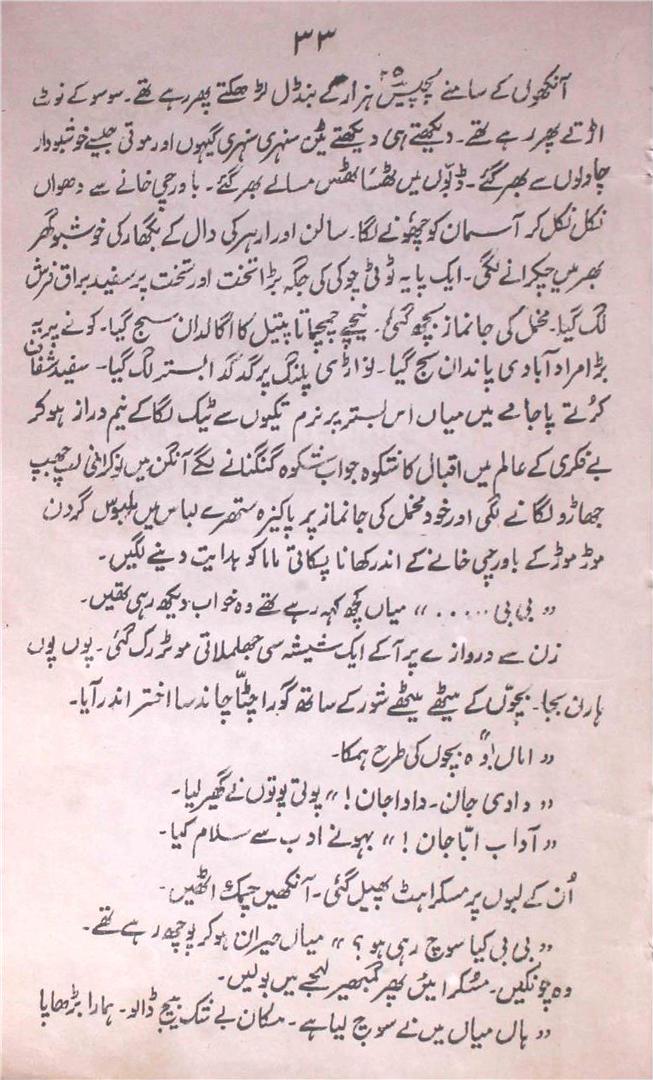 ۳۳
آنکھوں کے سامنے پچیس ۲۵ ہزار کے بنڈل لڑھکتے پھر رہے تھے۔ سو سو کے نوٹ
اڑتے پھر رہے تھے۔ دیکھتے ہی دیکھتے ٹین سنہری سنہری گیہوں اور موتی جیسے خوشبودار
چاولوں سے بھر گئے۔ ڈبّوں میں ٹھسا ٹھس مسالے بھر گئے۔ باورچی خانے سے دھواں
نکل نکل کر آسمان کو چھونے لگا۔ سالن اور ارہر کی دال کے بگھار کی خوشبو گھر
بھر میں چکرانے لگی۔ ایک پایہ ٹوٹی چوکی کی جگہ بڑا تخت اور تخت پر سفید براق فرش
لگ گیا۔ مخمل کی جانماز بچھ گئی۔ نیچے چمچماتا پیتل کا اگالدان سج گیا۔ کونے پر یہ
بڑا مرادآبادی پاندان سج گیا۔ نواڑی پلنگ پر گدگدا بستر لگ گیا۔ سفید شفاف
کرتے پاجامے میں میاں اس بستر پر نرم تکیوں سے ٹیک لگا کے نیم دراز ہو کر
بے فکری کے عالم میں اقبال کا شکوہ جواب شکوہ گنگنانے لگے آنگن میں نوکرانی لپ جھپ
جھاڑو لگانے لگی اور خود مخمل کی جانماز پر پاکیزہ ستھرے لباس میں ملبوس گردن
موڑ موڑ کے باورچی خانے کے اندر کھانا پکاتی ماما کو ہدایت دینے لگیں۔
"بی بی ....." میاں کچھ کہہ رہے تھے وہ خواب دیکھ رہی تھیں۔
زن سے دروازے پر آ کے ایک شیشہ سی جھلملاتی موٹر رک گئی۔ پوں پوں
ہارن بجا۔ بچّوں کے میٹھے میٹھے شور کے ساتھ گورا چٹّا چاند سا اختر اندر آیا۔
"اماں!" وہ بچوں کی طرح ہمکا۔
"دادی جان۔ دادا جان!" پوتی پوتوں نے گھیر لیا۔
"آداب ابّا جان!" بہو نے ادب سے سلام کیا۔
اُن کے لبوں پر مسکراہٹ پھیل گئی۔ آنکھیں چمک اٹھیں۔
"بی بی کیا سوچ رہی ہو؟" میاں حیران ہو کر پوچھ رہے تھے۔
وہ چونکیں۔ مسکرائیں پھر گمبھیر لہجے میں بولیں۔
"ہاں میاں میں نے سوچ لیا ہے۔ مکان بے شک بیچ ڈالو۔ ہمارا بڑھاپا